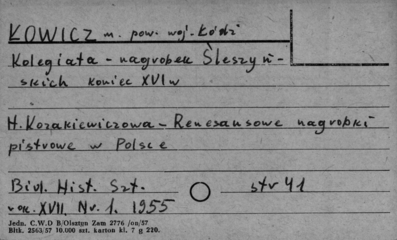 ŁOWICZ m. pow. woj. Łódź
Kolegiata - nagrobek Śleszyń-
skich koniec XVI w
H. Kozakiewiczowa - Renesansowe nagrobki
piętrowe w Polsce
Biul. Hist. Szt.
str 41
rok. XVII, Nr. 1. 1955
Jedn. C.W.D B/Olsztyn Zam 2776 /on/57
Bltk. 2563/57 10.000 szt. karton kl. 7 g 220.